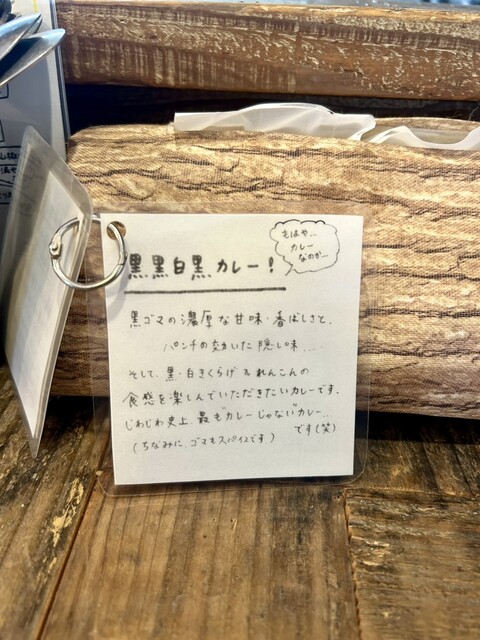 黒黒白黒カレー!
もはや…
カレー
なのか…
黒ゴマの濃厚な甘味・香ばしさと、
パンチの効いた隠し味…
そして、黒・白きくらげ&れんこんの
食感を楽しんでいただきたいカレーです。
じわじわ史上、最も"カレーじゃない"カレー…
です(笑)
(ちなみに、ゴマもスパイスです。)